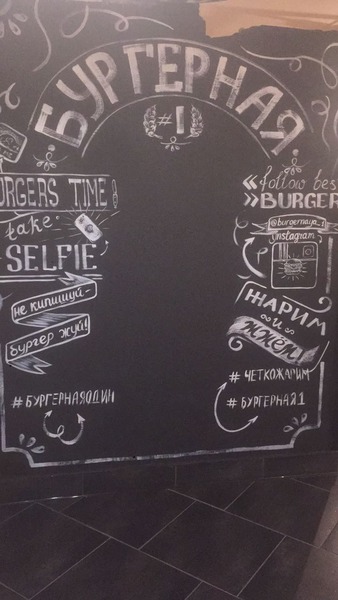 БУРГЕРНАЯ
#1
BURGERS TIME!
take
SELFIE
не кипишуй -
бургер жуй!
#БУРГЕРНАЯОДИН
« follow best
» BURGER
@burgernaya_1
instagram
ЖАРИМ
и
жжём!
#ЧЕТКОЖАРИМ
#БУРГЕРНАЯ1